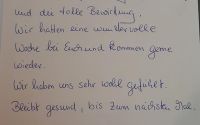 und die tolle Bewirtung.
Wir hatten eine wundervolle
Woche bei Euch und kommen gerne
wieder.
Wir haben uns sehr wohl gefühlt.
Bleibt gesund, bis zum nächsten Mal.